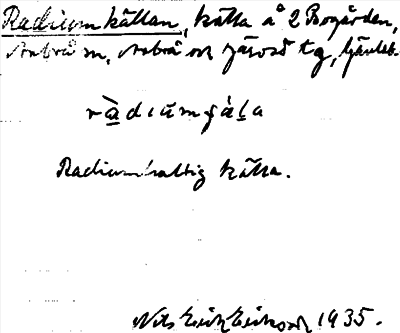 Radiumkällan, källa å 2 Bogården,
Arbrå sn, Arbrå och Järvsö tg, Gävleb.
ràdiumɉàla
Radiumhaltig källa.
Nils Erik Eriksson 1935.